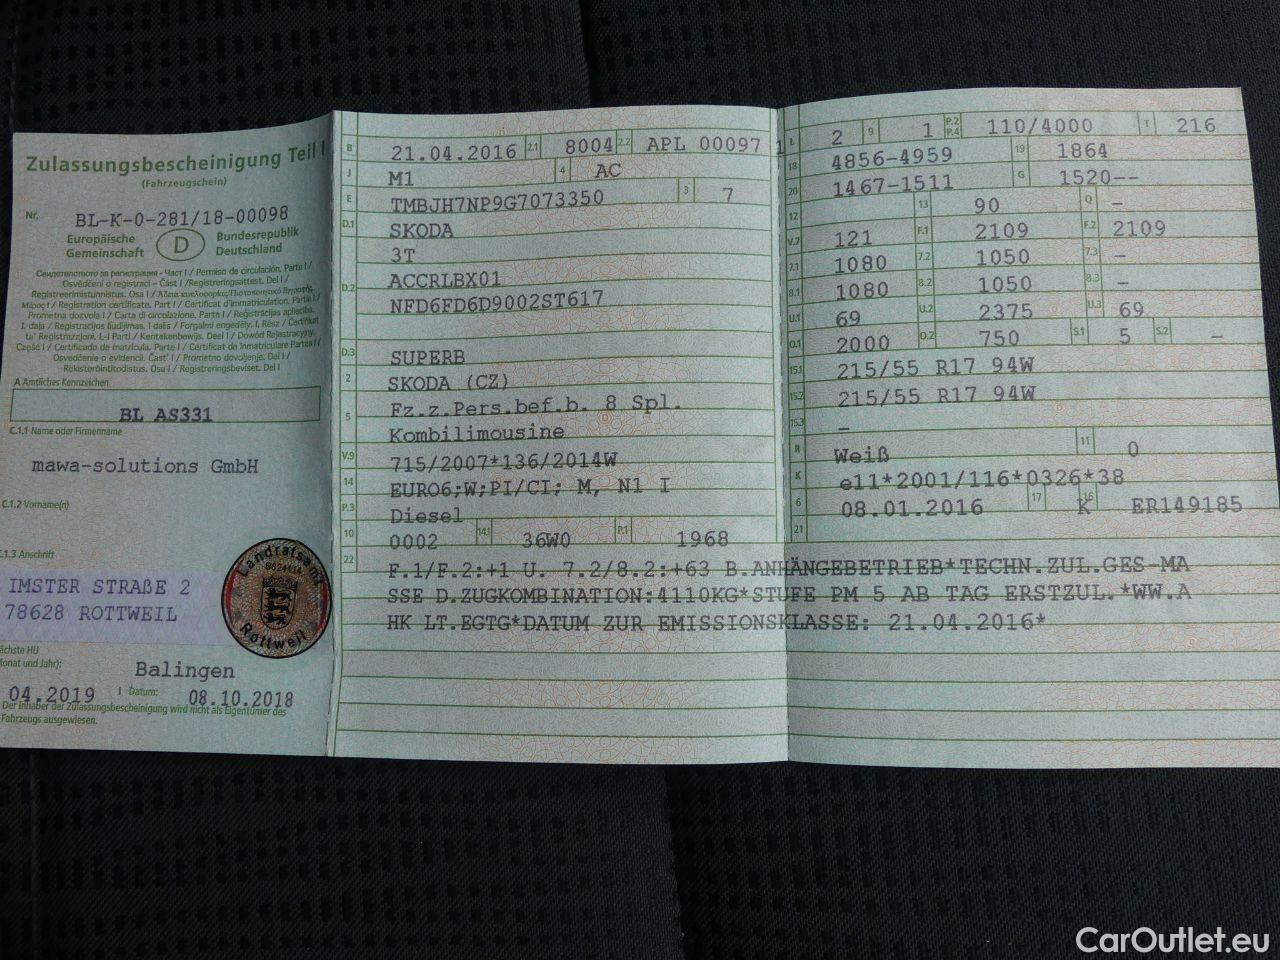 Zulassungsbescheinigung Teil I
(Fahrzeugschein)
Nr. BL-K-0-281/18-00098
Europäische Gemeinschaft D Bundesrepublik Deutschland
Свидетелство за регистрация - Част I / Permiso de circulación. Parte I /
Osvědčení o registraci - Část I / Registreringsattest. Del I /
Registreerimistunnistus. Osa I / Άδεια κυκλοφορίας/Πιστοποιητικό Εγγραφής
Μέρος I / Registration certificate. Part I / Certificat d'immatriculation. Partie I /
Prometna dozvola I / Carta di circolazione. Parte I / Reģistrācijas apliecība.
I. daļa / Registracijos liudijimas. I dalis / Forgalmi engedély. I. Rész / Ċertifikat
ta' Reġistrazzjoni. L-I Parti / Kentekenbewijs. Deel I / Dowód Rejestracyjny.
Część I / Certificado de matrícula. Parte I / Certificat de înmatriculare Partea I /
Osvedčenie o evidencii. Časť I / Prometno dovoljenje. Del I /
Rekisteröintitodistus. Osa I / Registreringsbeviset. Del I
A Amtliches Kennzeichen
BL AS331
C.1.1 Name oder Firmenname
mawa-solutions GmbH
C.1.2 Vorname(n)
C.1.3 Anschrift
IMSTER STRAßE 2
78628 ROTTWEIL
Landratsamt
Rottweil
Nächste HU
(Monat und Jahr):
Balingen
04.2019 I Datum: 08.10.2018
Der Inhaber der Zulassungsbescheinigung wird nicht als Eigentümer des
Fahrzeugs ausgewiesen.
B 21.04.2016 2.1 8004 2.2 APL 00097 1
J M1 4 AC
E TMBJH7NP9G7073350 3 7
D.1 SKODA
3T
D.2 ACCRLBX01
NFD6FD6D9002ST617
D.3 SUPERB
2 SKODA (CZ)
5 Fz.z.Pers.bef.b. 8 Spl.
Kombilimousine
V.9 715/2007*136/2014W
14 EURO6;W;PI/CI; M, N1 I
P.3 Diesel
10 0002 14.1 36W0 P.1 1968
L 2 9 1 P.2 P.4 110/4000 T 216
18 4856-4959 19 1864
20 1467-1511 G 1520--
12 13 90 Q –
V.7 121 F.1 2109 F.2 2109
7.1 1080 7.2 1050 7.3 –
8.1 1080 8.2 1050 8.3 –
U.1 69 U.2 2375 U.3 69
O.1 2000 O.2 750 S.1 5 S.2 –
15.1 215/55 R17 94W
15.2 215/55 R17 94W
15.3 –
R Weiß 11 0
K e11*2001/116*0326*38
6 08.01.2016 17 K 16 ER149185
21
22 F.1/F.2:+1 U. 7.2/8.2:+63 B.ANHÄNGEBETRIEB*TECHN.ZUL.GES-MA
SSE D.ZUGKOMBINATION:4110KG*STUFE PM 5 AB TAG ERSTZUL.*WW.A
HK LT.EGTG*DATUM ZUR EMISSIONSKLASSE: 21.04.2016*
CarOutlet.eu